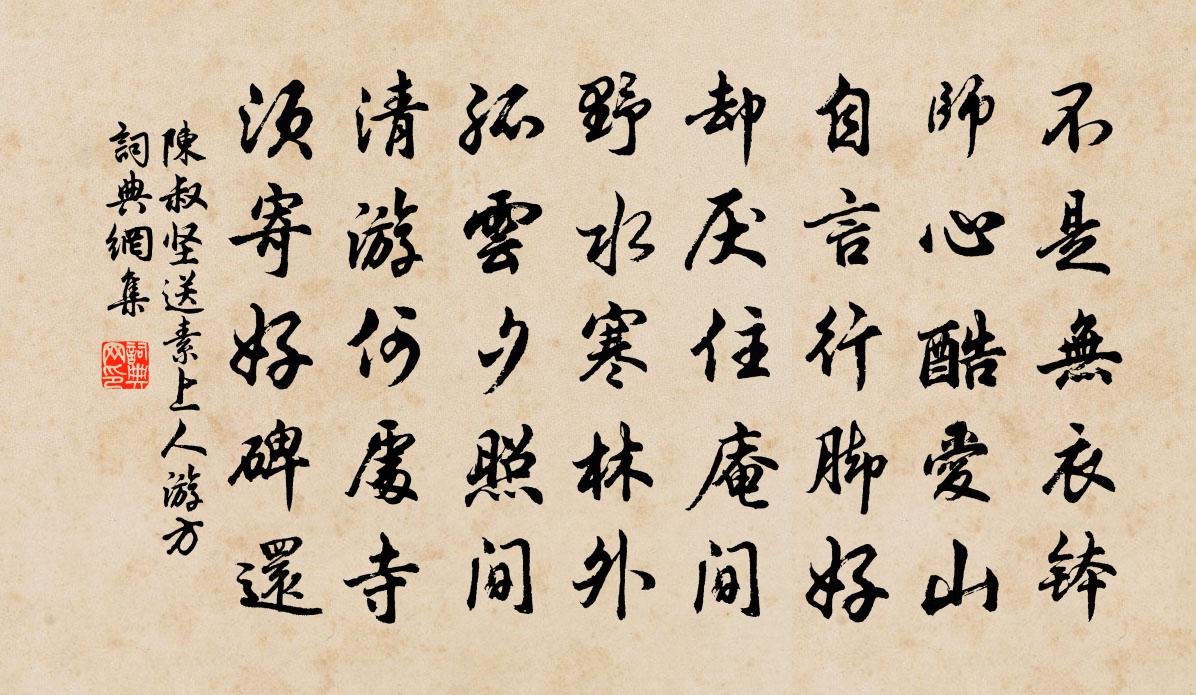 不是無衣钵
師心酷愛山
自言行脚好
却厌住庵间
野水寒林外
孤雲夕照间
清游何處寺
须寄好碑還
陳叔坚送素上人游方
詞典網集
詞典网印